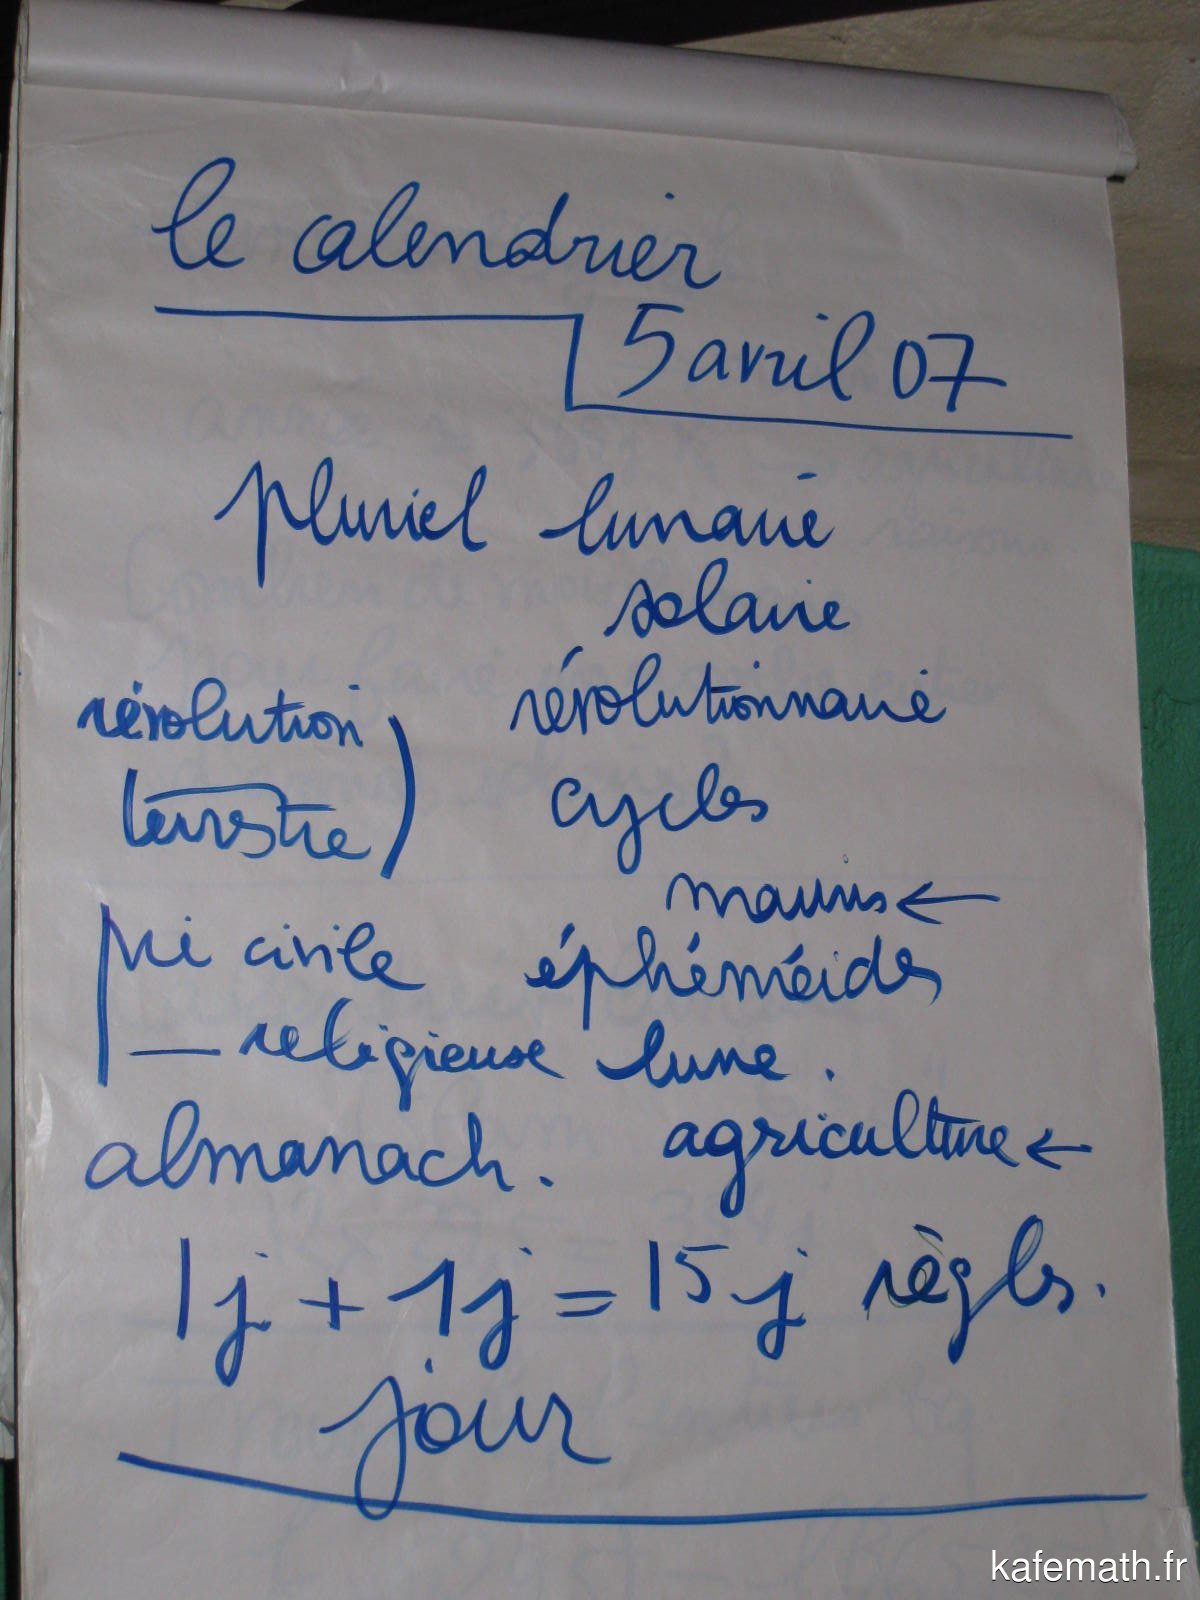 le calendrier
5 avril 07
pluriel lunaire
solaire
révolution révolutionnaire
terrestre) cycles
marins ←
vie civile éphémérides
— religieuse lune.
almanach. agriculture ←
1j + 1j = 15j règles.
jour
kafemath.fr